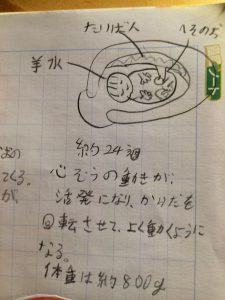 たいばん
へその お
羊水
ノート
約24週
心ぞうの動きが、
活発になり、からだを
回転させて、よく動くように
なる。
体重は約800g
てくる。
が、